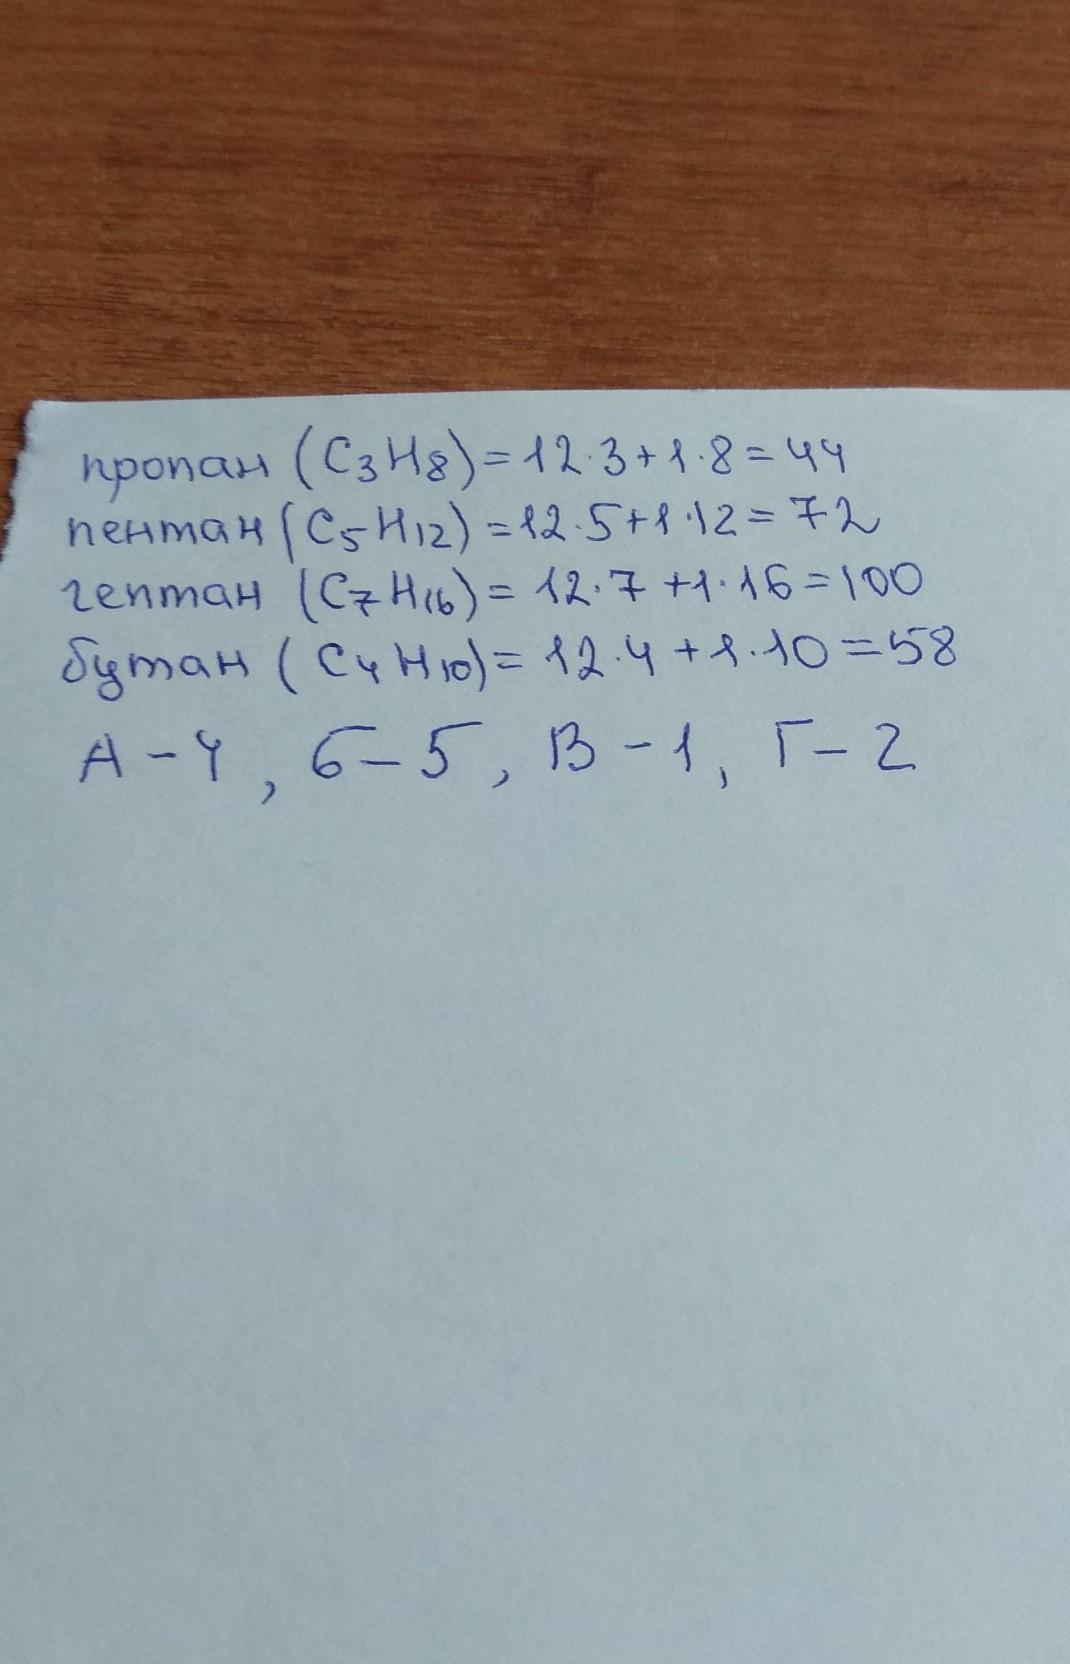 пропан (C₃H₈) = 12·3+1·8 = 44
пентан (C₅H₁₂) = 12·5+1·12 = 72
гептан (C₇H₁₆) = 12·7+1·16 = 100
бутан (C₄H₁₀) = 12·4+1·10 = 58
А – 4, Б – 5, В – 1, Г – 2